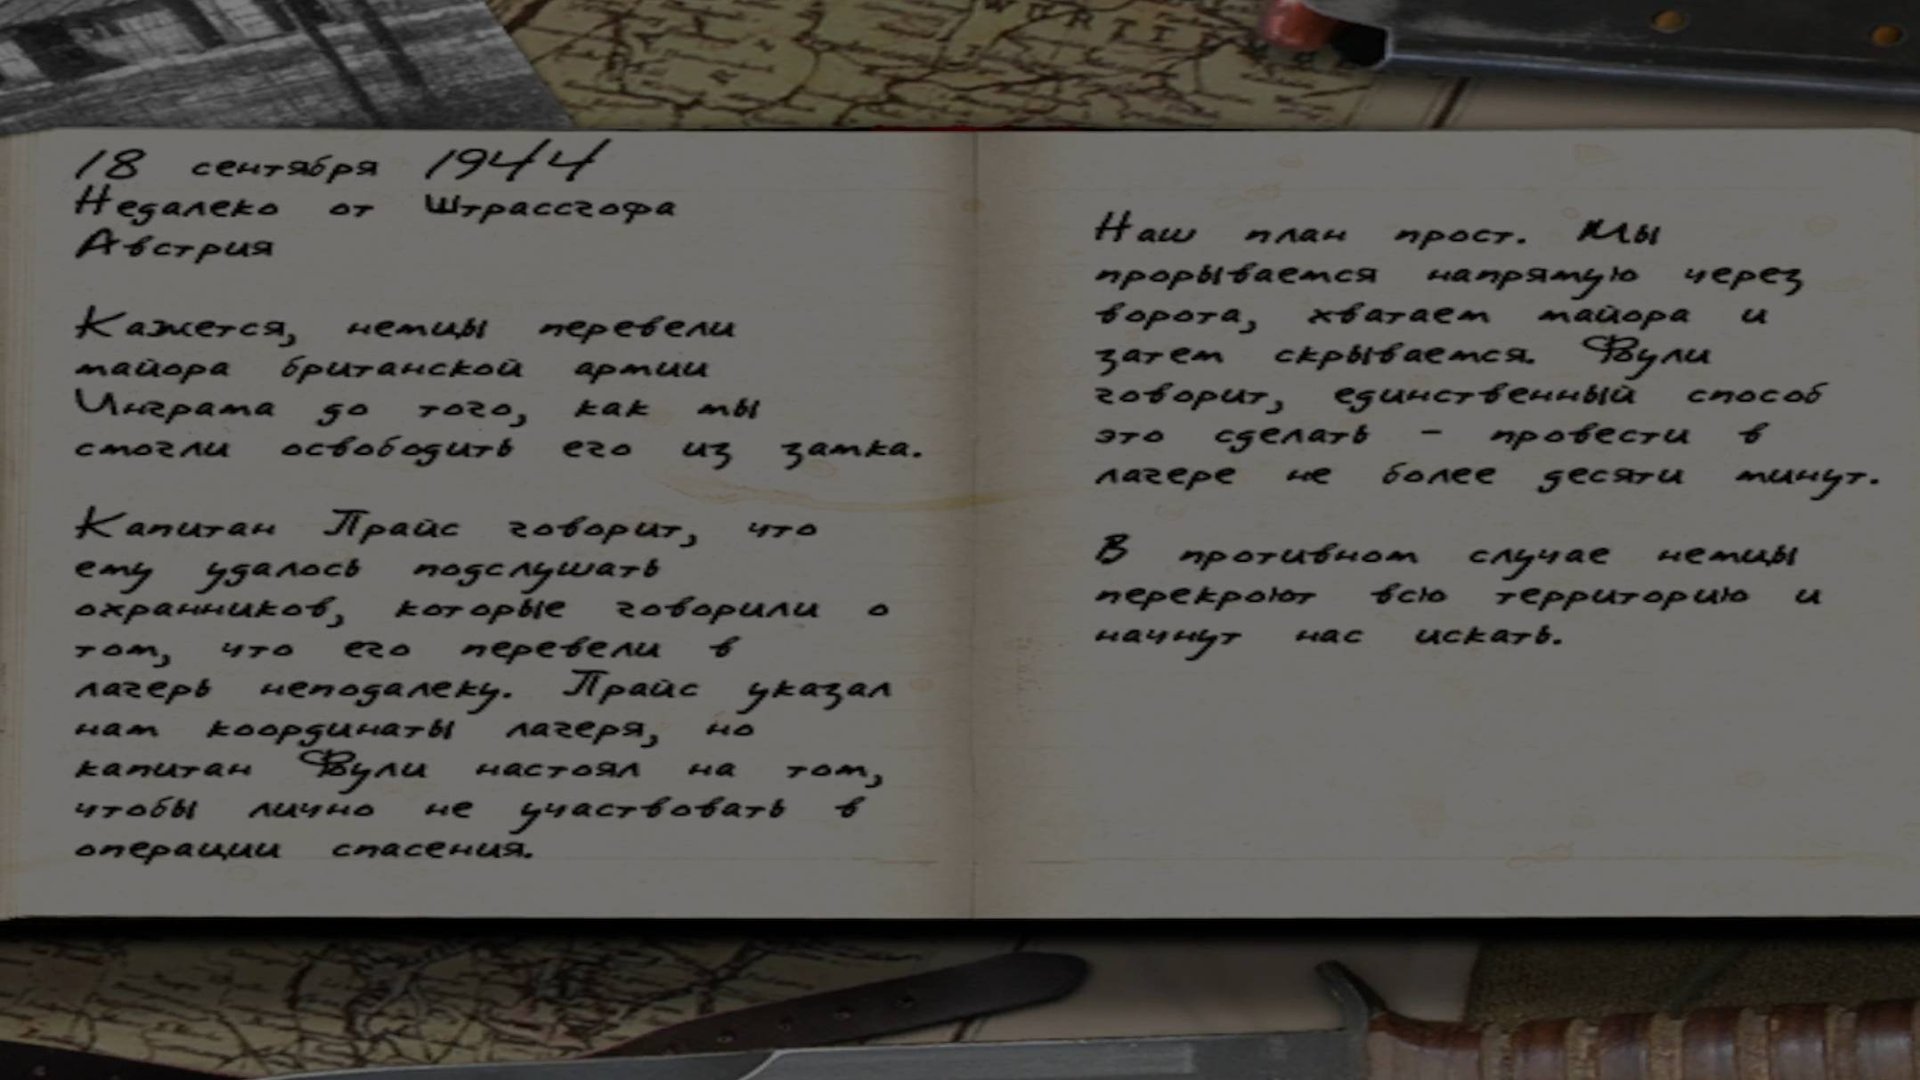 18 сентября 1944
Недалеко от Штрассгофа
Австрия
Кажется, немцы перевели
майора британской армии
Инграма до того, как мы
смогли освободить его из замка.
Капитан Прайс говорит, что
ему удалось подслушать
охранников, которые говорили о
том, что его перевели в
лагерь неподалеку. Прайс указал
нам координаты лагеря, но
капитан Фули настоял на том,
чтобы лично не участвовать в
операции спасения.
Наш план прост. Мы
прорываемся напрямую через
ворота, хватаем майора и
затем скрываемся. Фули
говорит, единственный способ
это сделать - провести в
лагере не более десяти минут.
В противном случае немцы
перекроют всю территорию и
начнут нас искать.